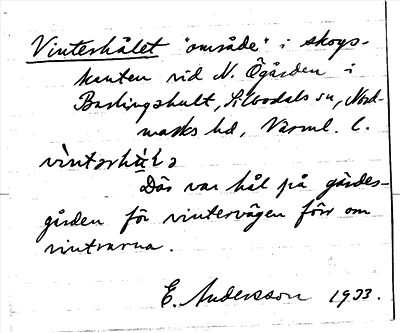 Vinterhålet "område" i skogs-
kanten vid N. Ögården i
Baslingshult, Silbodals sn, Nord-
marks hd, Värml. l.
Där var hål på gärdes-
gården för vintervägen förr om
vintrarna.
E. Andersson 1933.